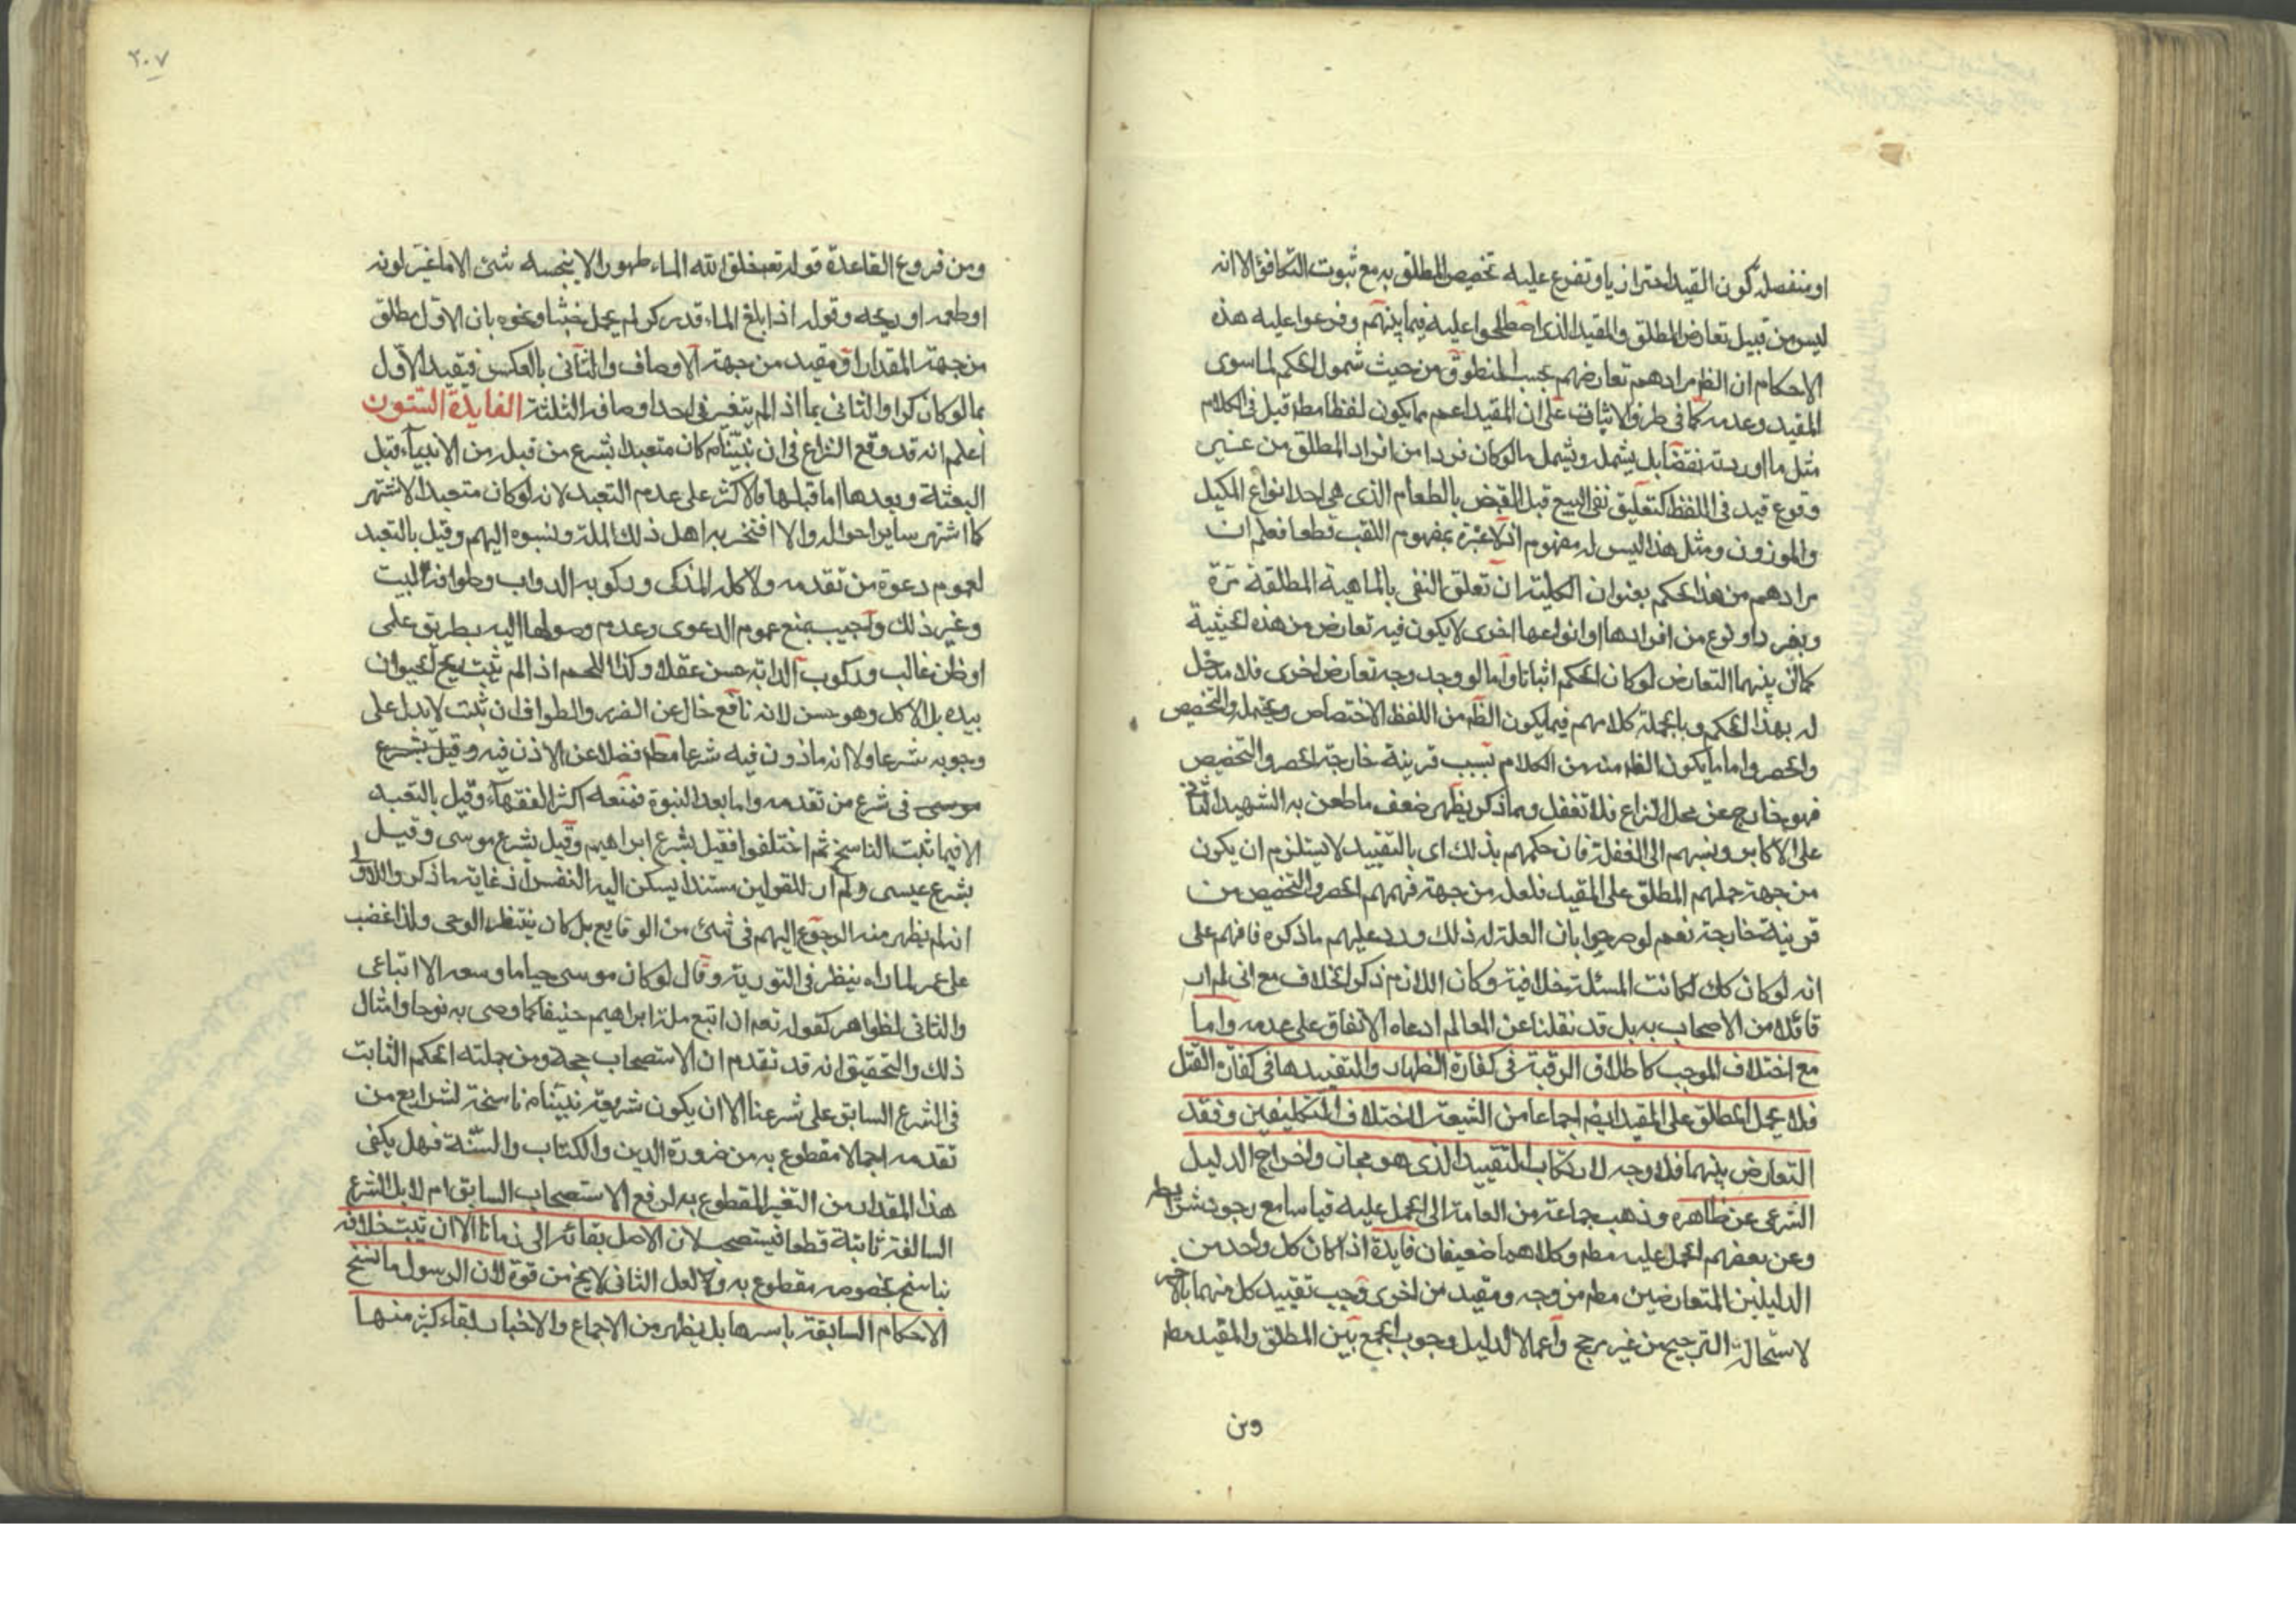 او منفصلة كون القيد احترازيا وتفرع عليه تخصيص المطلق به مع ثبوت التكافؤ الا انه
ليس من قبيل تعارض المطلق والمقيد الذى اصطلحوا عليه فيما بينهم وفرعوا عليه هذه
الاحكام ان الظ مرادهم تعارضهم بحسب المنطوق من حيث شمول الحكم لما سوى
المقيد وعدمه كما فى طرف الاثبات على ان المقيد اعم مما يكون لفظا مط قيل فى الكلام
مثل ما اوردته نقضا بل يشمله ويشمل ما لو كان فردا من افراد المطلق من غير
وقوع قيد فى اللفظ كتعليق نفى البيع قبل القبض بالطعام الذى هى احد انواع المكيل
والموزون ومثل هذا ليس له مفهوم اذ لا عبرة بمفهوم اللقب قطعا فعلم ان
مرادهم من هذا الحكم بعنوان الكلية ان تعلق النفى بالماهية المطلقة مرة
وبفرد او نوع من افرادها او انواعها اخرى لا يكون فيه تعارض من هذه الحيثية
كما ان بينهما التعارض لو كان الحكم اثباتا واما لو وجد وجه تعارض اخرى فلا مدخل
له بهذا الحكم وبالجملة كلامهم فيما يكون الظ من اللفظ الاختصاص ويحتمل والتخصيص
والحصر واما ما يكون الظ منه من الكلام بسبب قرينة خارجة الحصر والتخصيص
فهو خارج عن محل النزاع فلا تغفل وبما ذكر يظهر ضعف ما طعن به الشهيد الثانى
على الاكابر ونسبهم الى الغفلة فان حكمهم بذلك اى بالتقييد لا يستلزم ان يكون
من جهة حملهم المطلق على المقيد فلعله من جهة فهمهم الحصر والتخصيص من
قرينة خارجة نعم لو صرحوا بان العلة له ذلك ورد عليهم ماذكره فافهم على
انه لو كان كك لكانت المسئلة خلافية وكان اللازم ذكر الخلاف مع انى لم ار
قائلا من الاصحاب به بل قد نقلنا عن المعالم ادعاه الاتفاق على عدمه واما
مع اختلاف الموجب كاطلاق الرقبة فى كفارة الظهار والتقييدها فى كفارة القتل
فلا يحمل المطلق على المقيد ايضم اجماعا من الشيعة لاختلاف التكليفين وفقد
التعارض بينهما فلا وجه لارتكاب التقييد الذى هو مجاز واخراج الدليل
الشرعى عن ظاهره وذهب جماعة من العامة الى الحمل عليه قياسا مع وجود شرايطه
وعن بعضهم الحمل عليه مطم وكلاهما ضعيفان فايدة اذا كان كل واحد من
الدليلين المتعارضين مطم من وجه ومقيد من اخرى وجب تقييد كل منهما بالآخر
لاستحالة الترجيح من غير مرجح واعمالا لدليل وجوب الجمع بين المطلق والمقيد مطم
ومن
٢٠٧
ومن فروع القاعدة قوله تعم خلق الله الماء طهورا لا ينجسه شئ الا ما غير لونه
او طعمه او ريحه وقوله اذا بلغ الماء قدر كر لم يحمل خبثا ونحوه بان الاول مطلق
من جهة المقدار ومقيد من جهة الاوصاف والثانى بالعكس فيقيد الاول
بما لو كان كرا والثانى بما اذا لم يتغير فى احد اوصافه الثلثة الفايدة الستون
اعلم انه قد وقع النزاع فى ان نبينا ص كان متعبدا بشرع من قبله من الانبياء قبل
البعثة وبعدها اما قبلها فالاكثر على عدم التعبد لانه لو كان متعبدا لاشتهر
كما اشتهر ساير احواله والا افتخر به اهل ذلك الملة ونسبوه اليهم وقيل بالتعبد
لعموم دعوة من تقدمه ولاكله المذكى وركوبه الدواب وطوافه البيت
وغير ذلك واجيب بمنع عموم الدعوى وعدم وصولها اليه بطريق على
او ظن غالب وركوب الدابة حسن عقلا وكذا اللحم اذ لم يثبت ذبح الحيوان
بيده بل الاكل وهو حسن لانه نافع خال عن الضرر والطواف ان ثبت لا يدل على
وجوبه شرعا ولا انه ماذون فيه شرعا مط فضلا عن الاذن فيه وقيل بشرع
موسى فى شرع من تقدمه واما بعد النبوة فمنعه اكثر الفقهاء وقيل بالتعبد
الا فيما ثبت الناسخ ثم اختلفوا فقيل بشرع ابراهيم وقيل بشرع موسى وقيل
بشرع عيسى ولم ار للقولين مستندا يسكن اليه النفس اذ غاية ما ذكر والاول
انه لم يظهر منه الرجوع اليهم فى شئ من الوقايع بل كان ينتظر الوحى ولذا غضب
على عمر لما راه ينظر فى التورية وقال لو كان موسى حيا ما وسعه الا اتباعى
والثانى لظواهر كقوله تعم ان اتبع ملة ابراهيم حنيفا كما وصى به نوحا وامثال
ذلك والتحقيق انه قد تقدم ان الاستصحاب حجة ومن جملته الحكم الثابت
فى الشرع السابق على شرعنا الا ان يكون شريعة نبينا ص ناسخة لشرايع من
تقدمه اجمالا مقطوع به من ضرورة الدين والكتاب والسنة فهل يكفى
هذا المقدار من التغير المقطوع به لرفع الاستصحاب السابق ام لا بل الشرع
السالفة ثابتة قطعا فيستصحب لان الاصل بقائه الى زماننا الا ان يثبت خلافه
بناسخ بخصوصه مقطوع به ولعل الثانى لا يخ من قوة لان الرسول ما نسخ
الاحكام السابقة باسرها بل يظهر من الاجماع والاخبار بقاء كثير منها